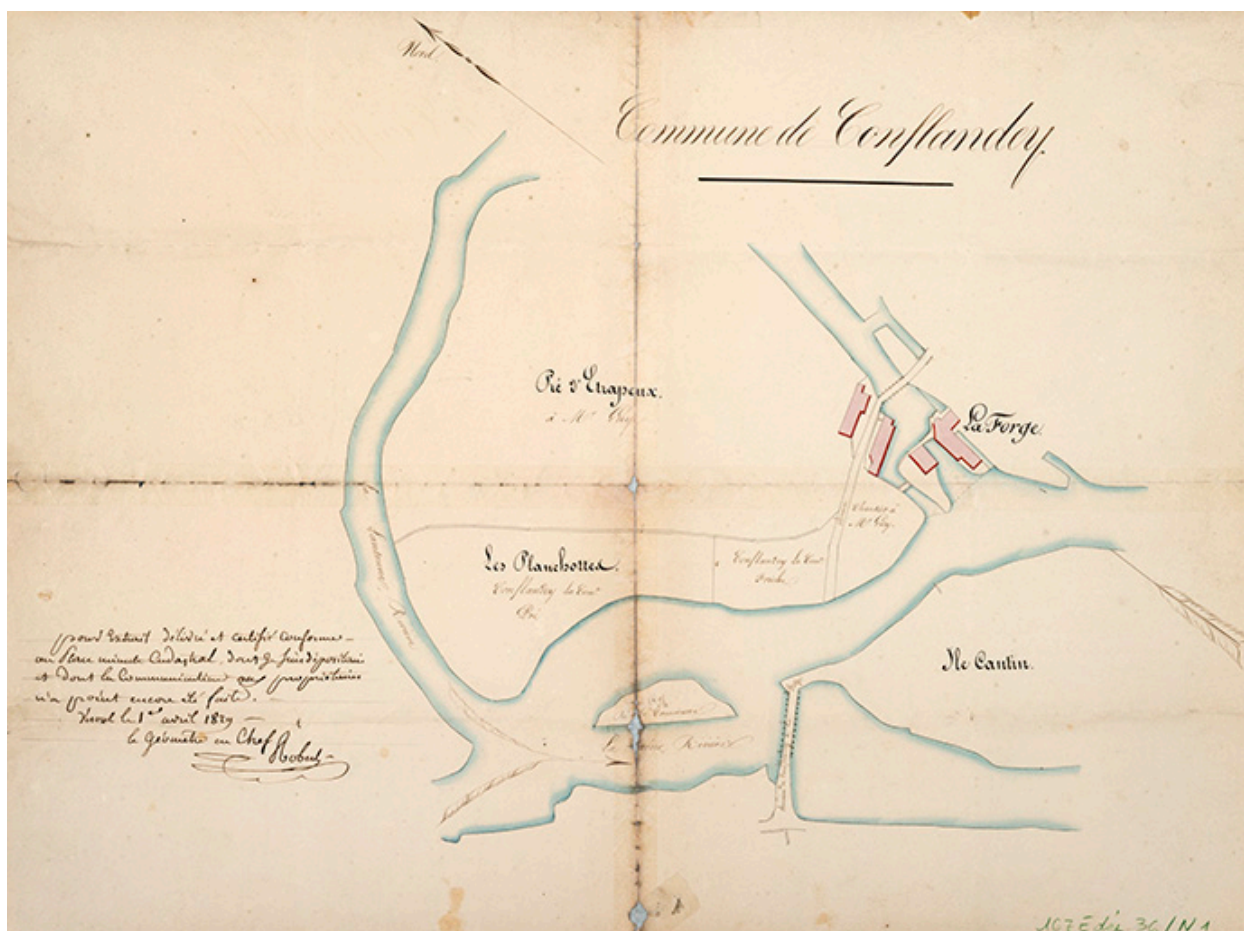 Nord.
Commune de Conflandey.
Pré d'Etrapeux.
à Mr Gay
La Forge.
à
Mr Gay.
Les Planchottes.
Conflandey la Comne
Pré
Conflandey la Comne
La Lanterne Rivière
Ile Cantin.
Rivière
pour Extrait délivré et certifié conforme
au Plan minute Cadastral, dont je suis dépositaire
et dont la Communication aux propriétaires
n'a point encore été faite.
Vesoul le 1er avril 1829
le Géomètre en Chef
Robert
107 E dép 36 / N 1